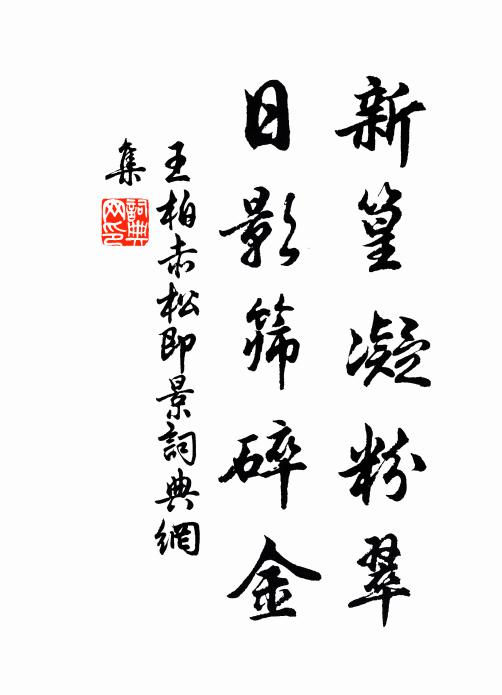 新篁凝粉翠
日影筛碎金
王柏赤松即景詞典網
集
詞典
网印